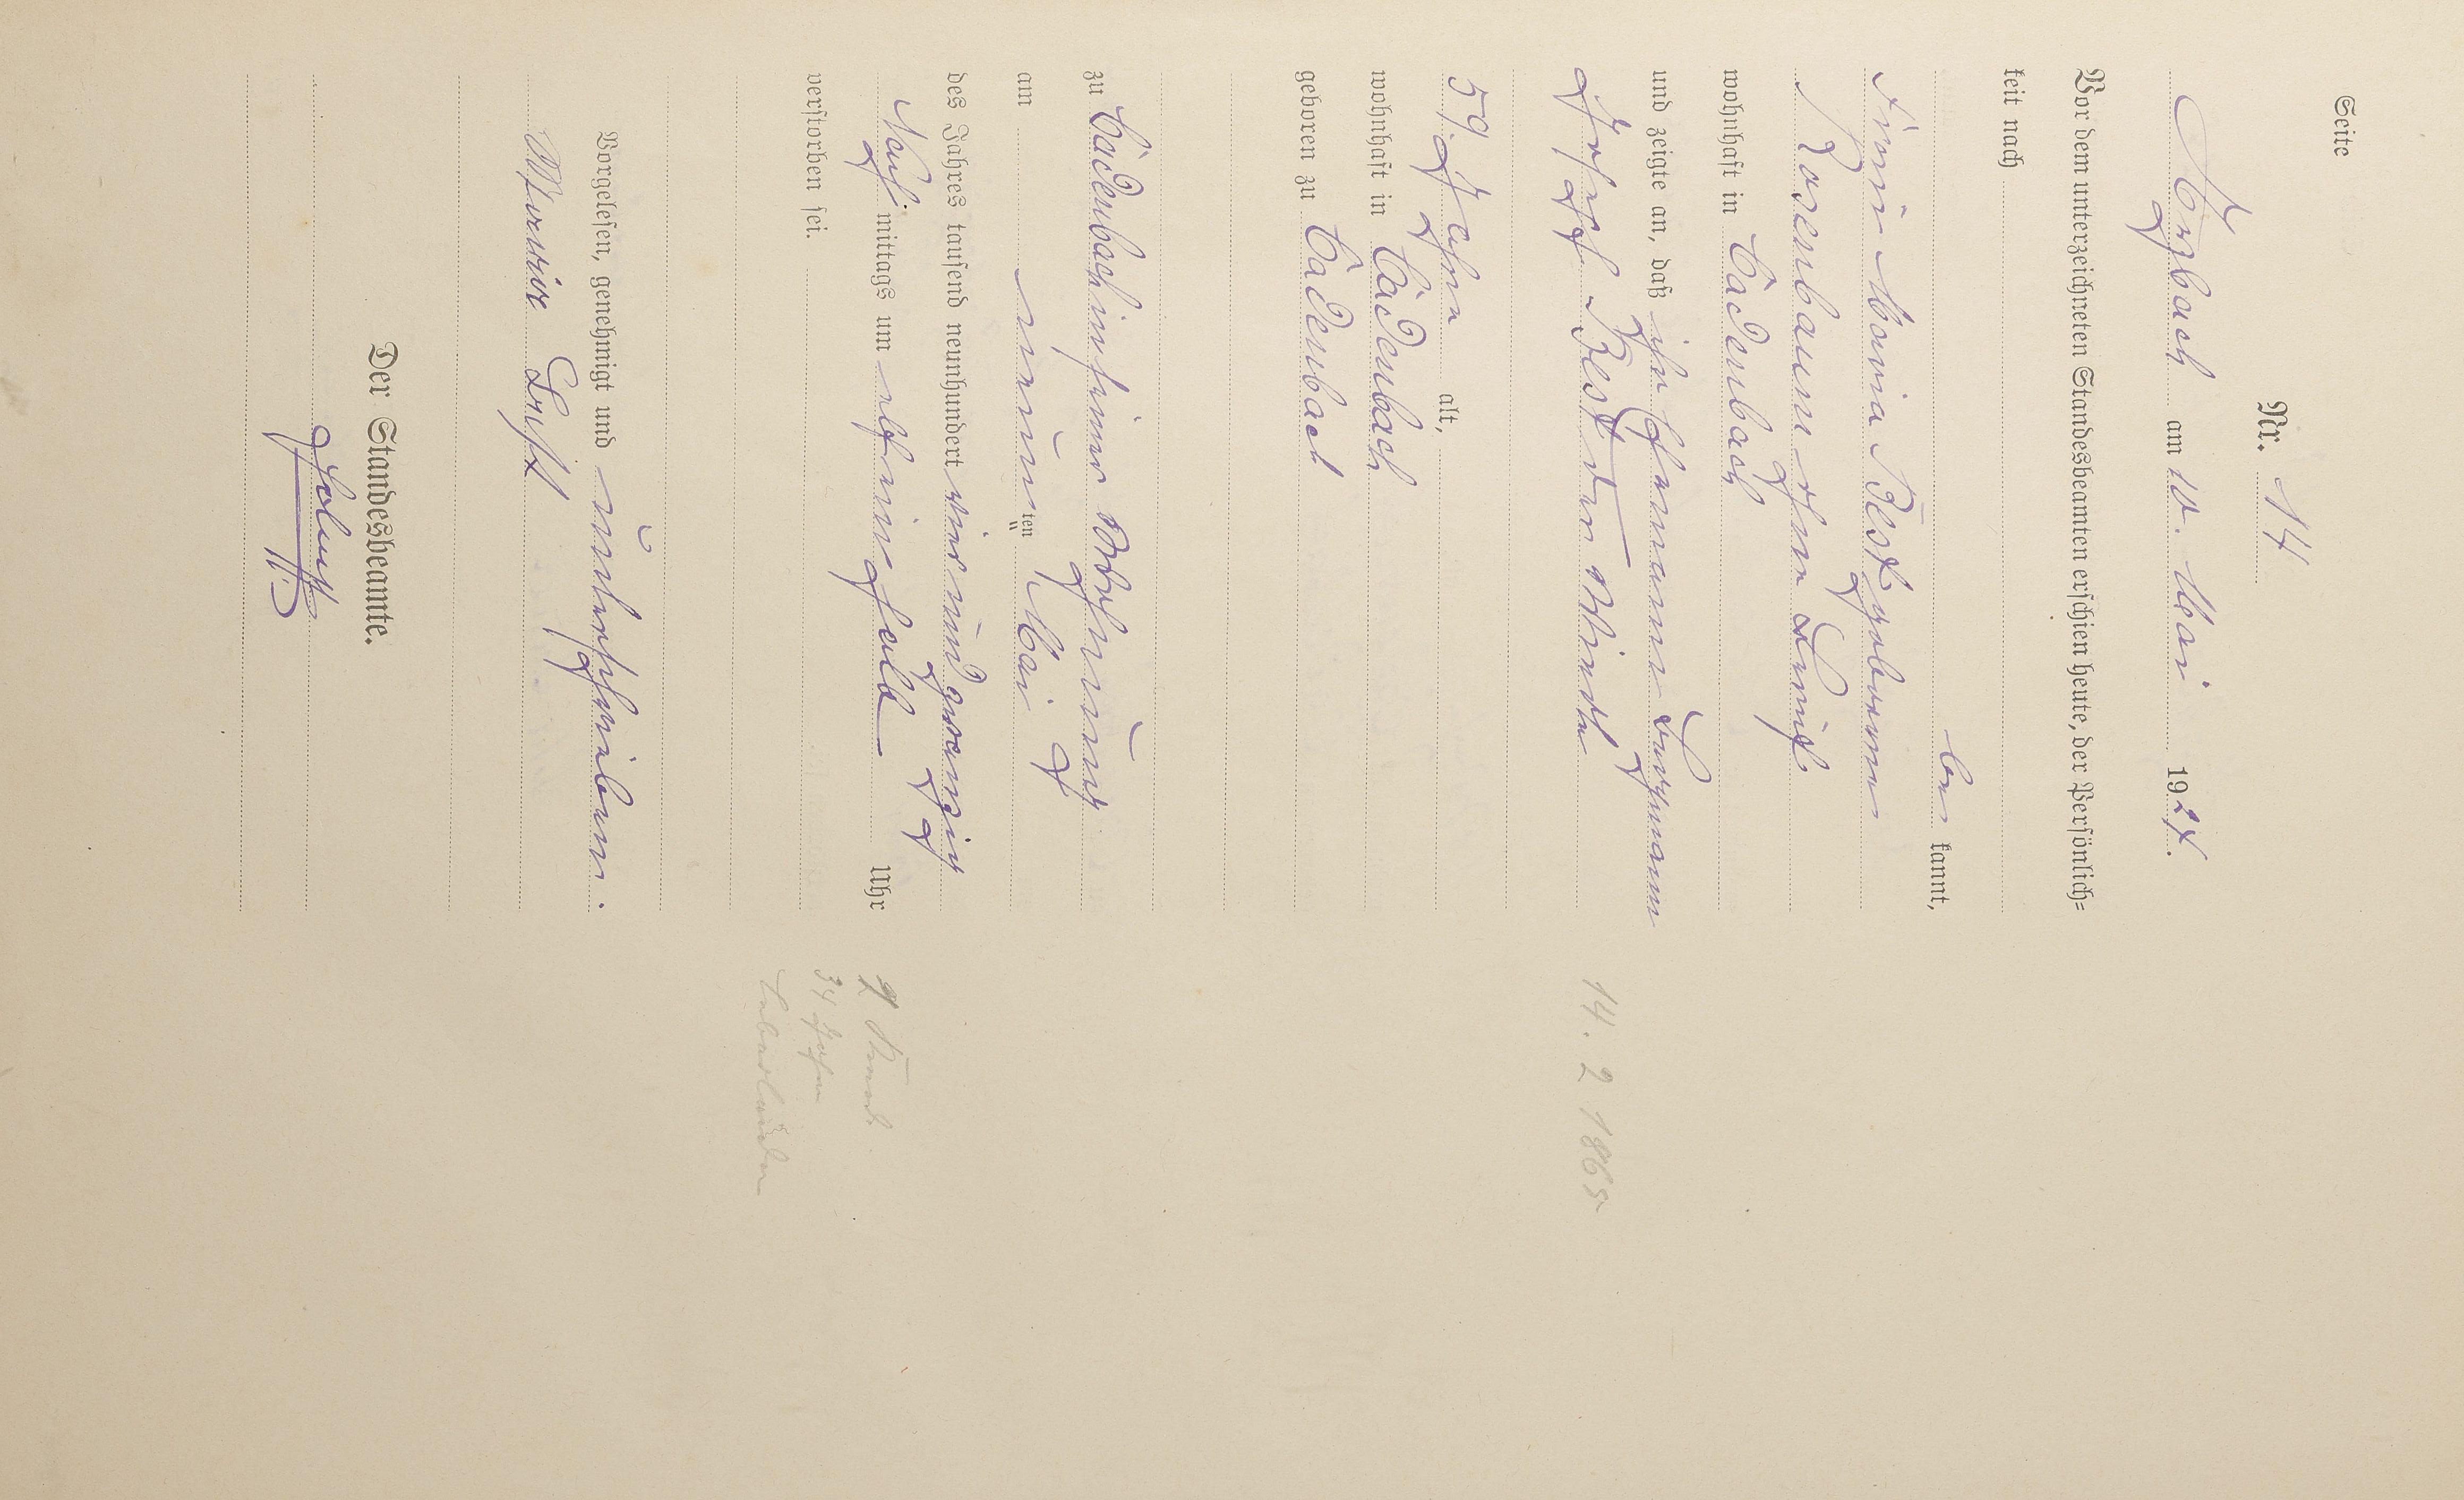 Seite
Nr. 14
Arzbach am 10. Mai 1924.
Vor dem unterzeichneten Standesbeamten erschien heute, der Persönlich-
keit nach
be kannt,
die Maria Best geborene
Rosenbaum ohne
wohnhaft in Cadenbach
und zeigte an, daß ihr Ehemann Bergmann
Josef Best der
59 Jahre alt,
wohnhaft in Cadenbach
geboren zu Cadenbach
zu Cadenbach in seiner Wohnung
am neunten Mai
des Jahres tausend neunhundert vierundzwanzig
Nach mittags um elfeinhalb Uhr
verstorben sei.
Vorgelesen, genehmigt und unterschrieben.
Der Standesbeamte.
14. 2 1865
34 Jahre